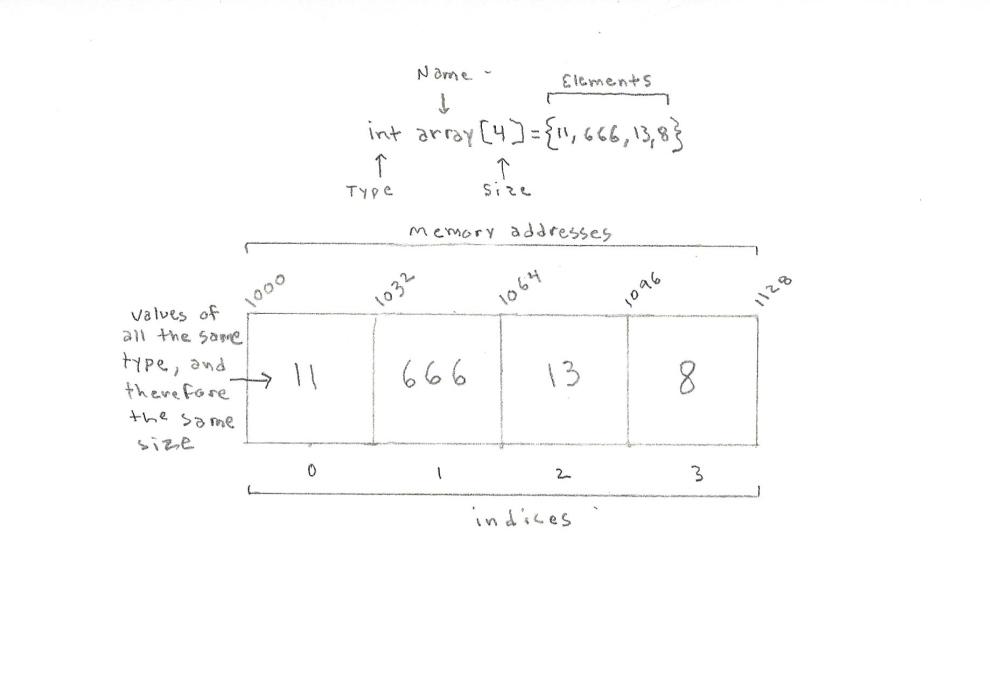 Name
Elements
int array[4]={11,666,13,8}
Type
Size
memory addresses
1000 1032 1064 1096 1128
values of
all the same
type, and
therefore
the same
size
11 666 13 8
0 1 2 3
indices